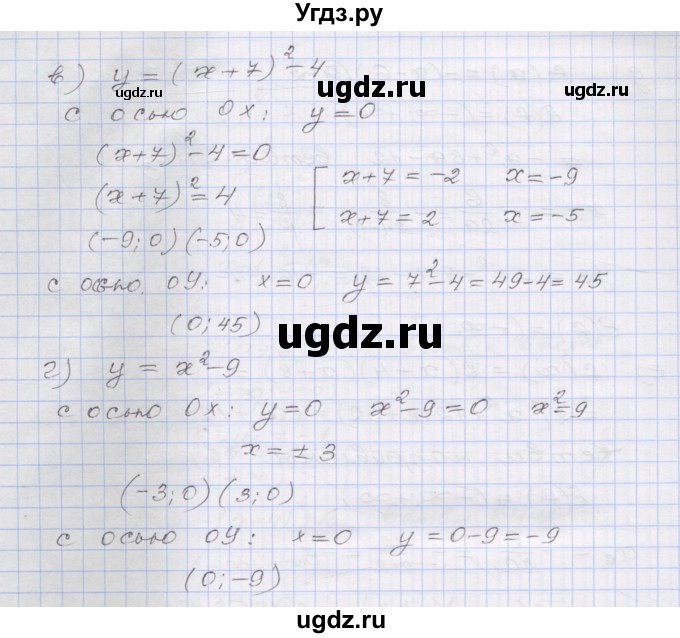 Угдз.ру
в) y = (x+7)² - 4
с осью Ox: y=0
(x+7)² - 4 = 0
(x+7)² = 4
[ x+7 = -2 x = -9
x+7 = 2 x = -5
(-9; 0) (-5; 0)
с осью Oy: x=0 y = 7² - 4 = 49 - 4 = 45
(0; 45)
г) y = x² - 9
с осью Ox: y=0 x² - 9 = 0 x² = 9
x = ± 3
(-3; 0) (3; 0)
с осью Oy: x=0 y = 0 - 9 = -9
(0; -9)
ugdz.ru
ugdz.ru
ugdz.ru
ugdz.ru
ugdz.ru